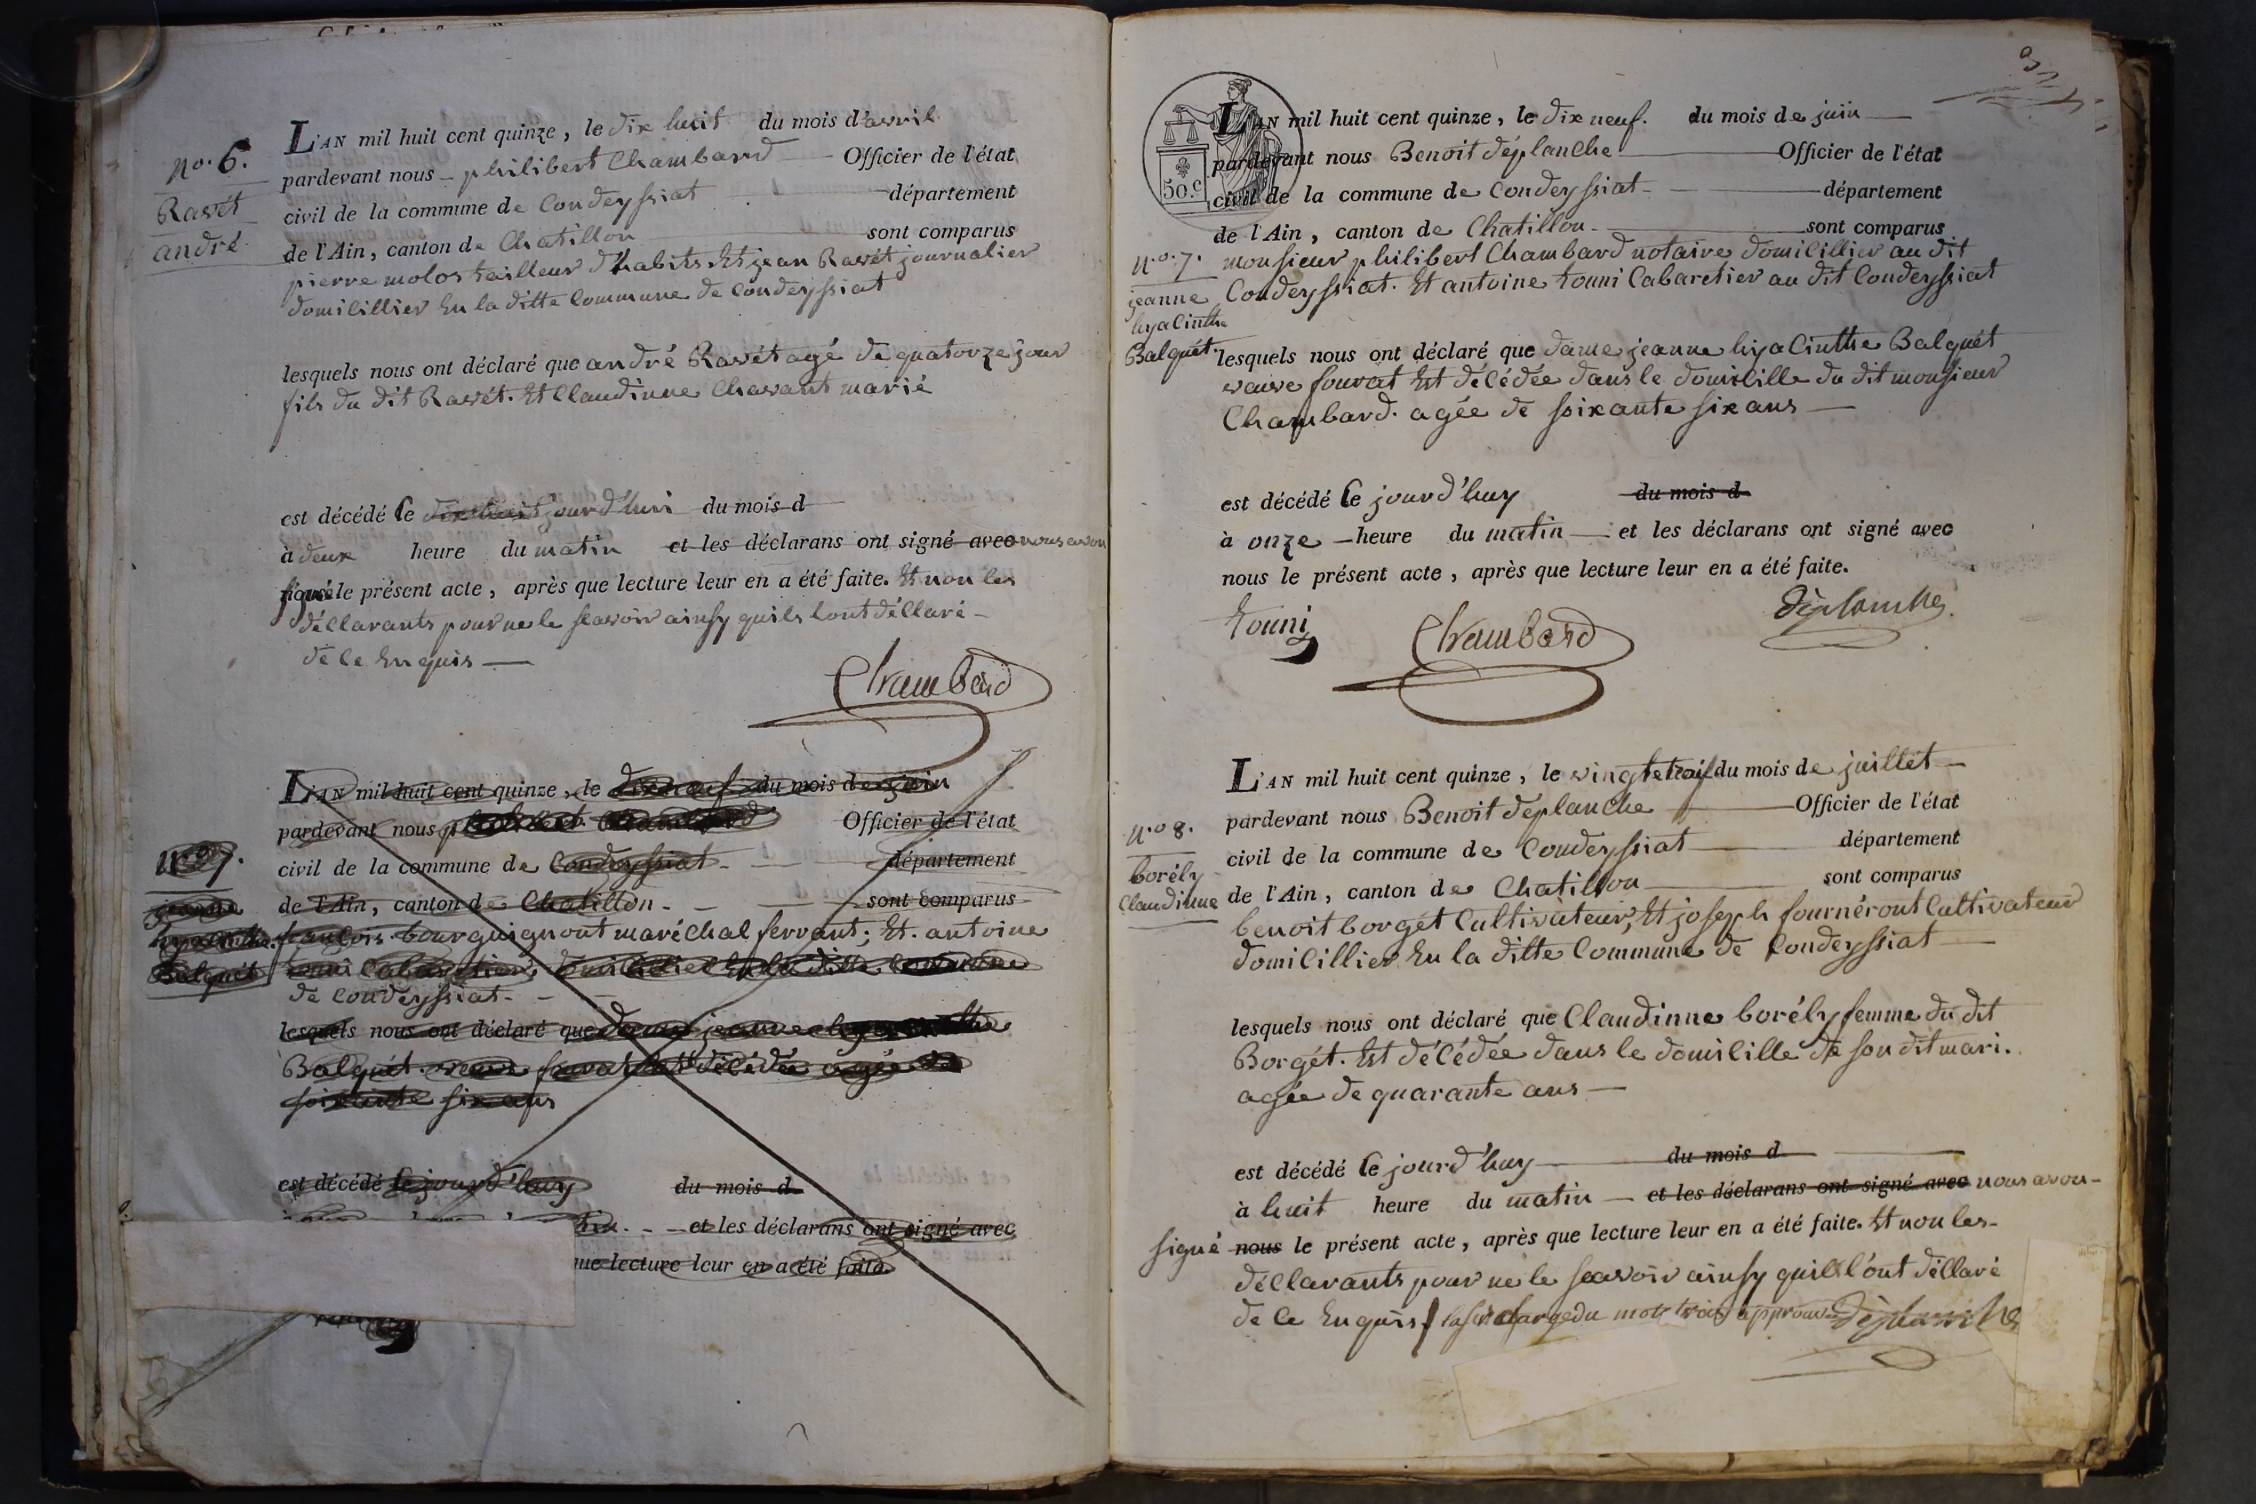 L'AN mil huit cent quinze, le dix huit du mois d'avril
no. 6.
pardevant nous philibert Chambard Officier de l'état
Ravét
civil de la commune de Condeyssiat département
andré
de l'Ain, canton de Chatillon sont comparus
pierre molos tailleur d'habits Et jean Ravét journalier
domicillier En la ditte Commune de Condeyssiat
lesquels nous ont déclaré que andré Ravét agé de quatorze jour
fils du dit Ravét. Et Claudinne Chavant marié
est décédé le dix huit jourd'hui du mois d
à deux heure du matin et les déclarans ont signé avec nous avon
signé le présent acte, après que lecture leur en a été faite. Et non les
déclarants pour ne le scavoir ainsy quils lont déllaré
de ce Enquis
Chambard
L'AN mil huit cent quinze, le dix neuf du mois de juin
pardevant nous philibert Chambard Officier de l'état
no. 7.
civil de la commune de Condeyssiat département
jeanne
de l'Ain, canton de Chatillon. sont comparus
hyacinthe
francois bourguignont maréchal ferrant; Et. antoine
Balquét
touni Cabaretier, domicillier En la ditte Commune
de Condeyssiat
lesquels nous ont déclaré que dame jeanne hyacinthe
Balquét veuve fouvat Est décédée agée de
soixante six ans
est décédé le jourd'huy du mois d
et les déclarans ont signé avec
lecture leur en a été faite.
L'AN mil huit cent quinze, le dix neuf. du mois de juin
pardevant nous Benoit déplanche Officier de l'état
50.c
civil de la commune de Condeyssiat département
de l'Ain, canton de Chatillon sont comparus
no. 7.
monsieur philibert Chambard notaire domicillier au dit
jeanne
Condeyssiat. Et antoine touni Cabaretier au dit Condeyssiat
hyacinthe
Balquét.
lesquels nous ont déclaré que dame jeanne hyacinthe Balquét
veuve fouvat Est décédée dans le domicille du dit monsieur
Chambard. agée de soixante six ans
est décédé le jourd'huy du mois d
à onze heure du matin et les déclarans ont signé avec
nous le présent acte, après que lecture leur en a été faite.
touni Chambard déplanche
L'AN mil huit cent quinze, le vingt troi du mois de juillet
pardevant nous Benoit déplanche Officier de l'état
no 8.
civil de la commune de Condeyssiat département
borély
Claudinne
de l'Ain, canton de Chatillon sont comparus
benoit borgét Cultivateur, Et joseph fournéront Cultivateur
domicillier En la ditte Commune de Condeyssiat
lesquels nous ont déclaré que Claudinne borély femme du dit
Borgét. Est décédée dans le domicille de son dit mari.
agée de quarante ans
est décédé le jourd'huy du mois d
à huit heure du matin et les déclarans ont signé avec nous avon
signé nous le présent acte, après que lecture leur en a été faite. Et non les
déclarants pour ne le scavoir ainsy quils l'ont déllaré
de ce Enquis. la surcharge du mot trois approuvé déplanche